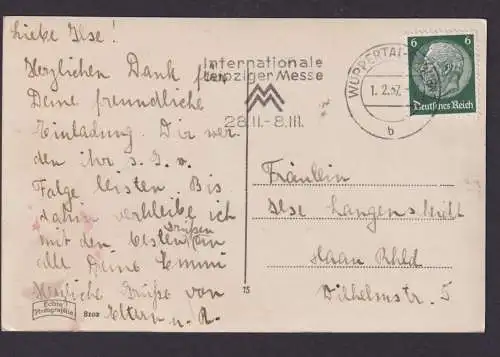 Liebe Ilse!
Herzlichen Dank für
Deine freundliche
Einladung. Wir wer-
den ihr s. G. w.
Folge leisten. Bis
dahin verbleibe ich
mit den besten Grüßen
alle Deine Emmi
Herzliche Grüße von
Eltern u. R.
Echte
Photographie
8102
15
Internationale
Leipziger Messe
MM
28.II.-8.III.
WUPPERTAL-
b
6
6
Deutsches Reich
Fräulein
Ilse Langenscheidt
Haan Rhld
Wilhelmstr. 5